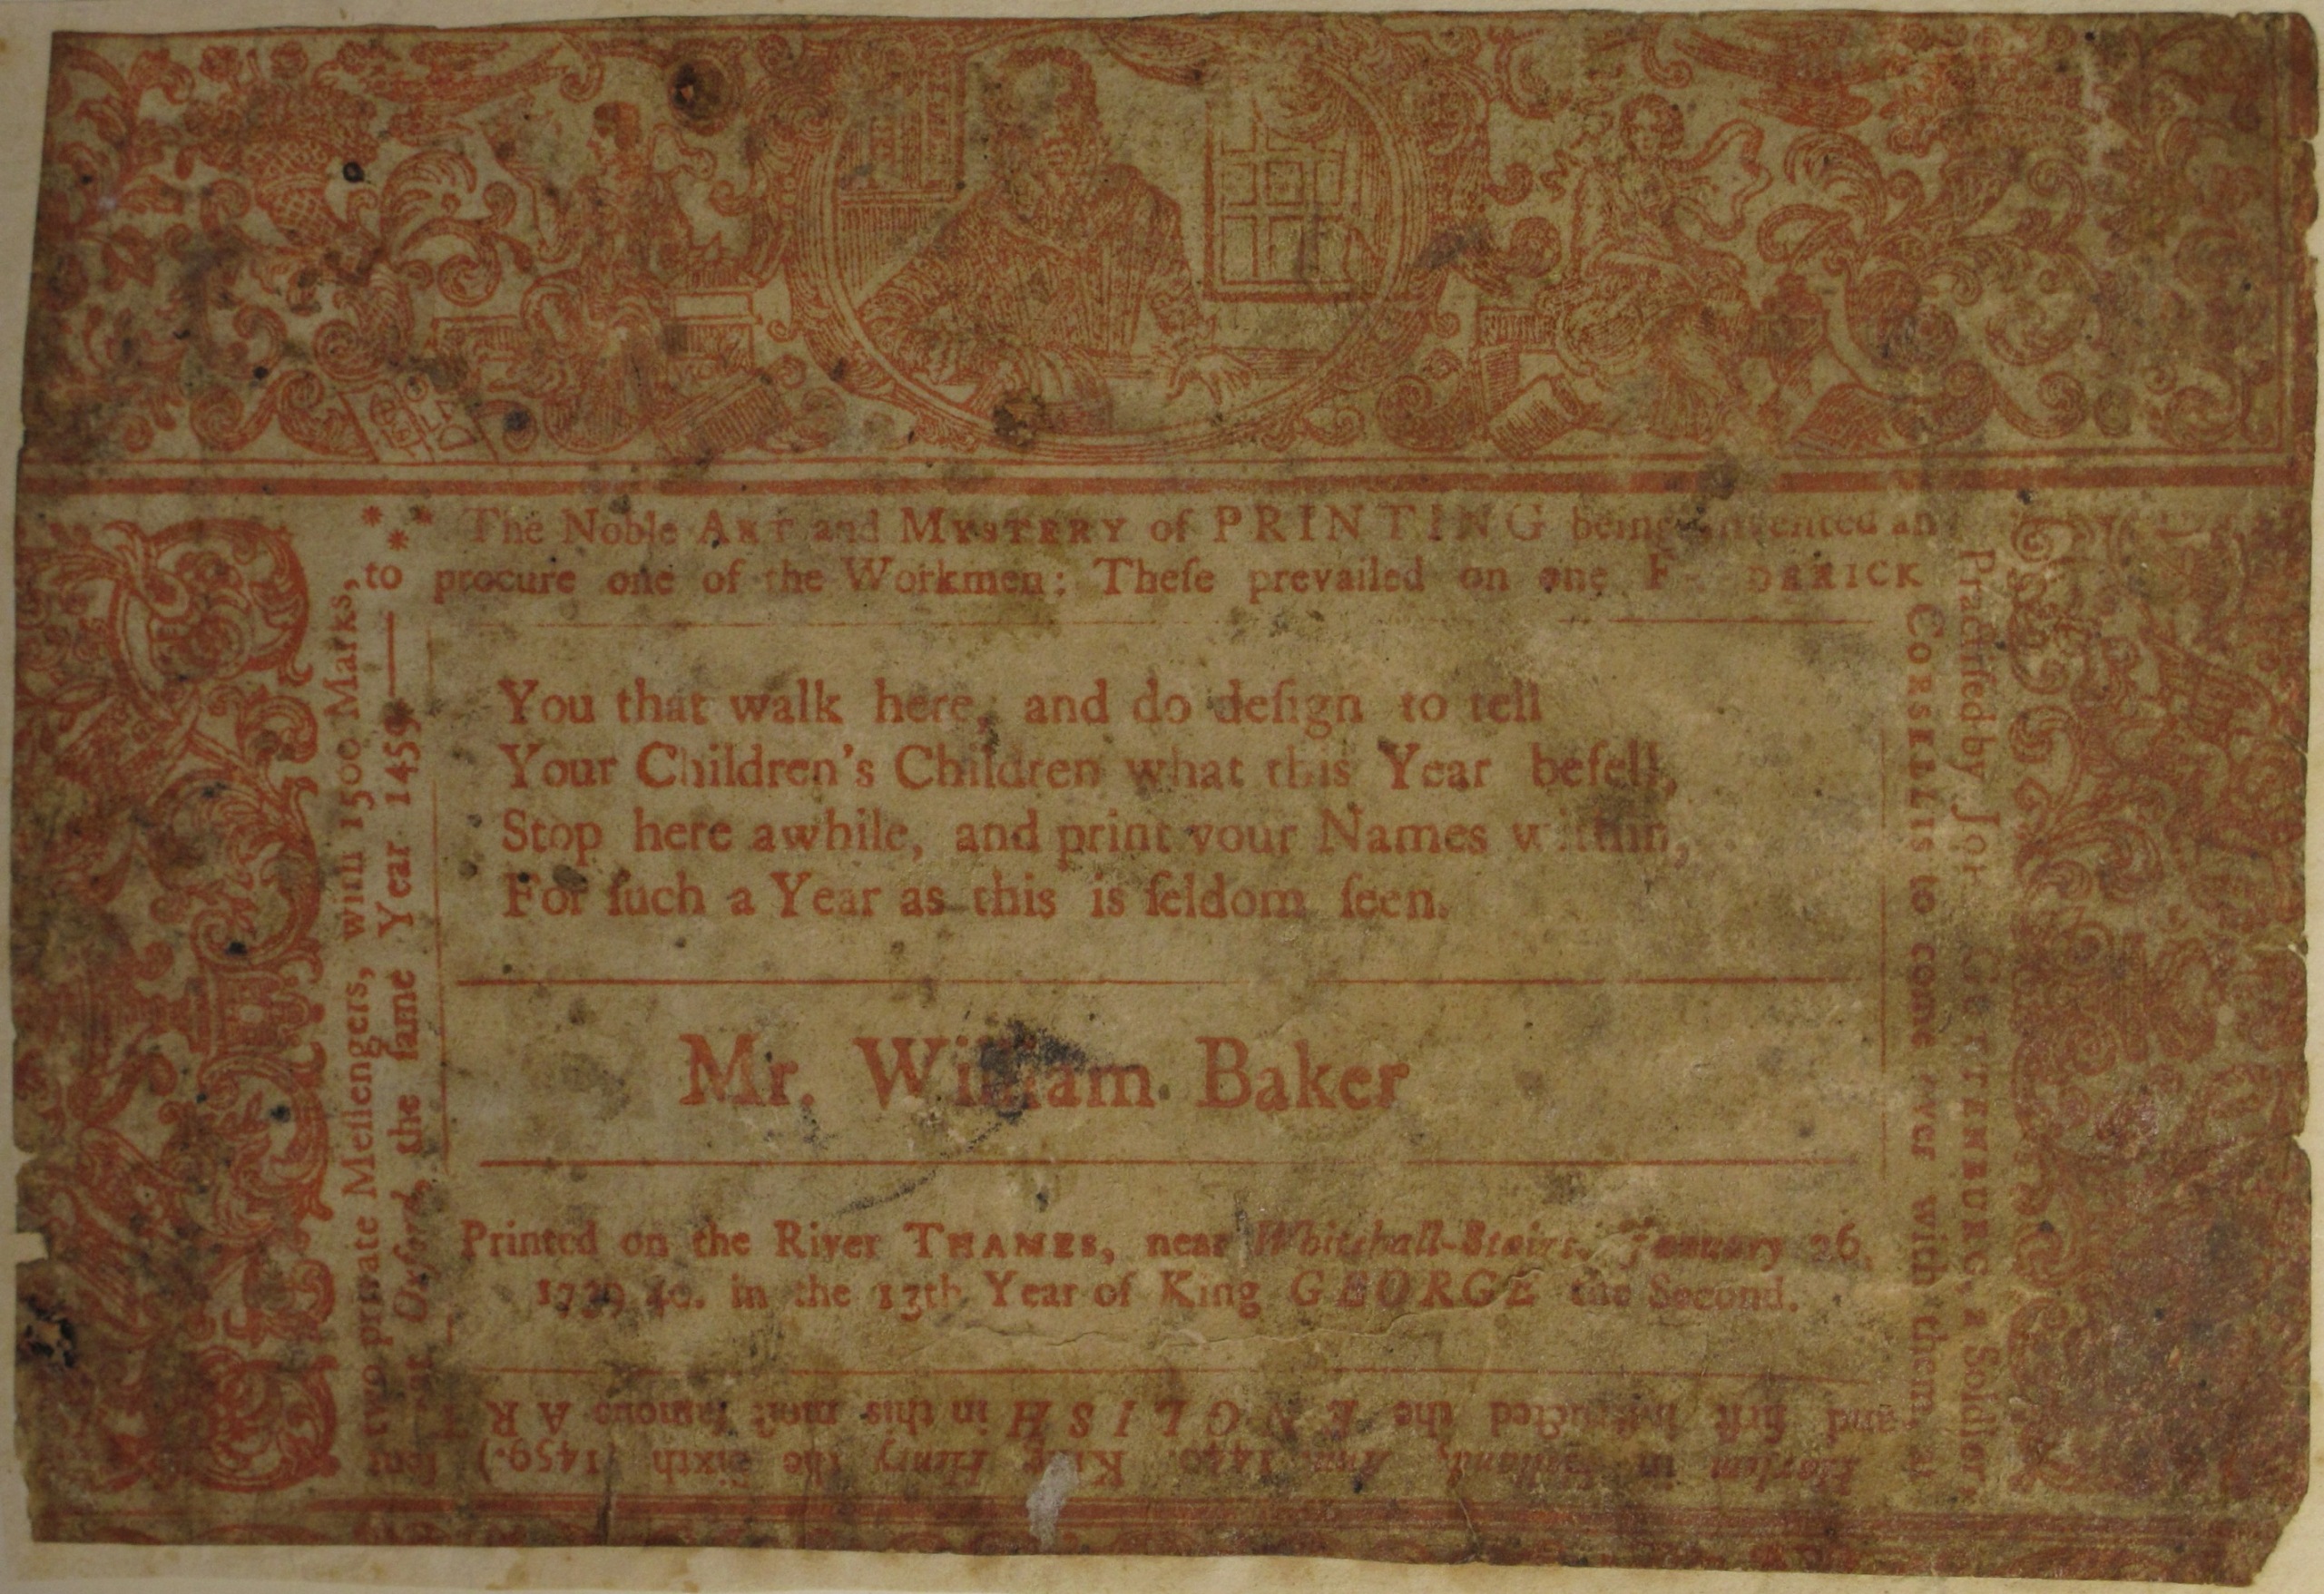 The Noble ART and MYSTERY of PRINTING being invented an
Practiſed by GUTTENBURG, a Soldier
Harlem in Holland, Ann. 1440. King Henry the Sixth (1459.) ſent
two private Meſſengers, with 1500 Marks,
to procure one of the Workmen; Theſe prevailed on one FREDERICK
CORSELLIS to come over with them,
and firſt inſtructed the ENGLISH in this moſt famous ART
at Oxford, the ſame Year 1459.
You that walk here, and do deſign to tell
Your Children's Children what this Year befell,
Stop here awhile, and print your Names within,
For ſuch a Year as this is ſeldom ſeen.
Mr. William Baker
Printed on the River THAMES, near Whitehall-Stairs, January 26,
1739 40. in the 13th Year of King GEORGE the Second.